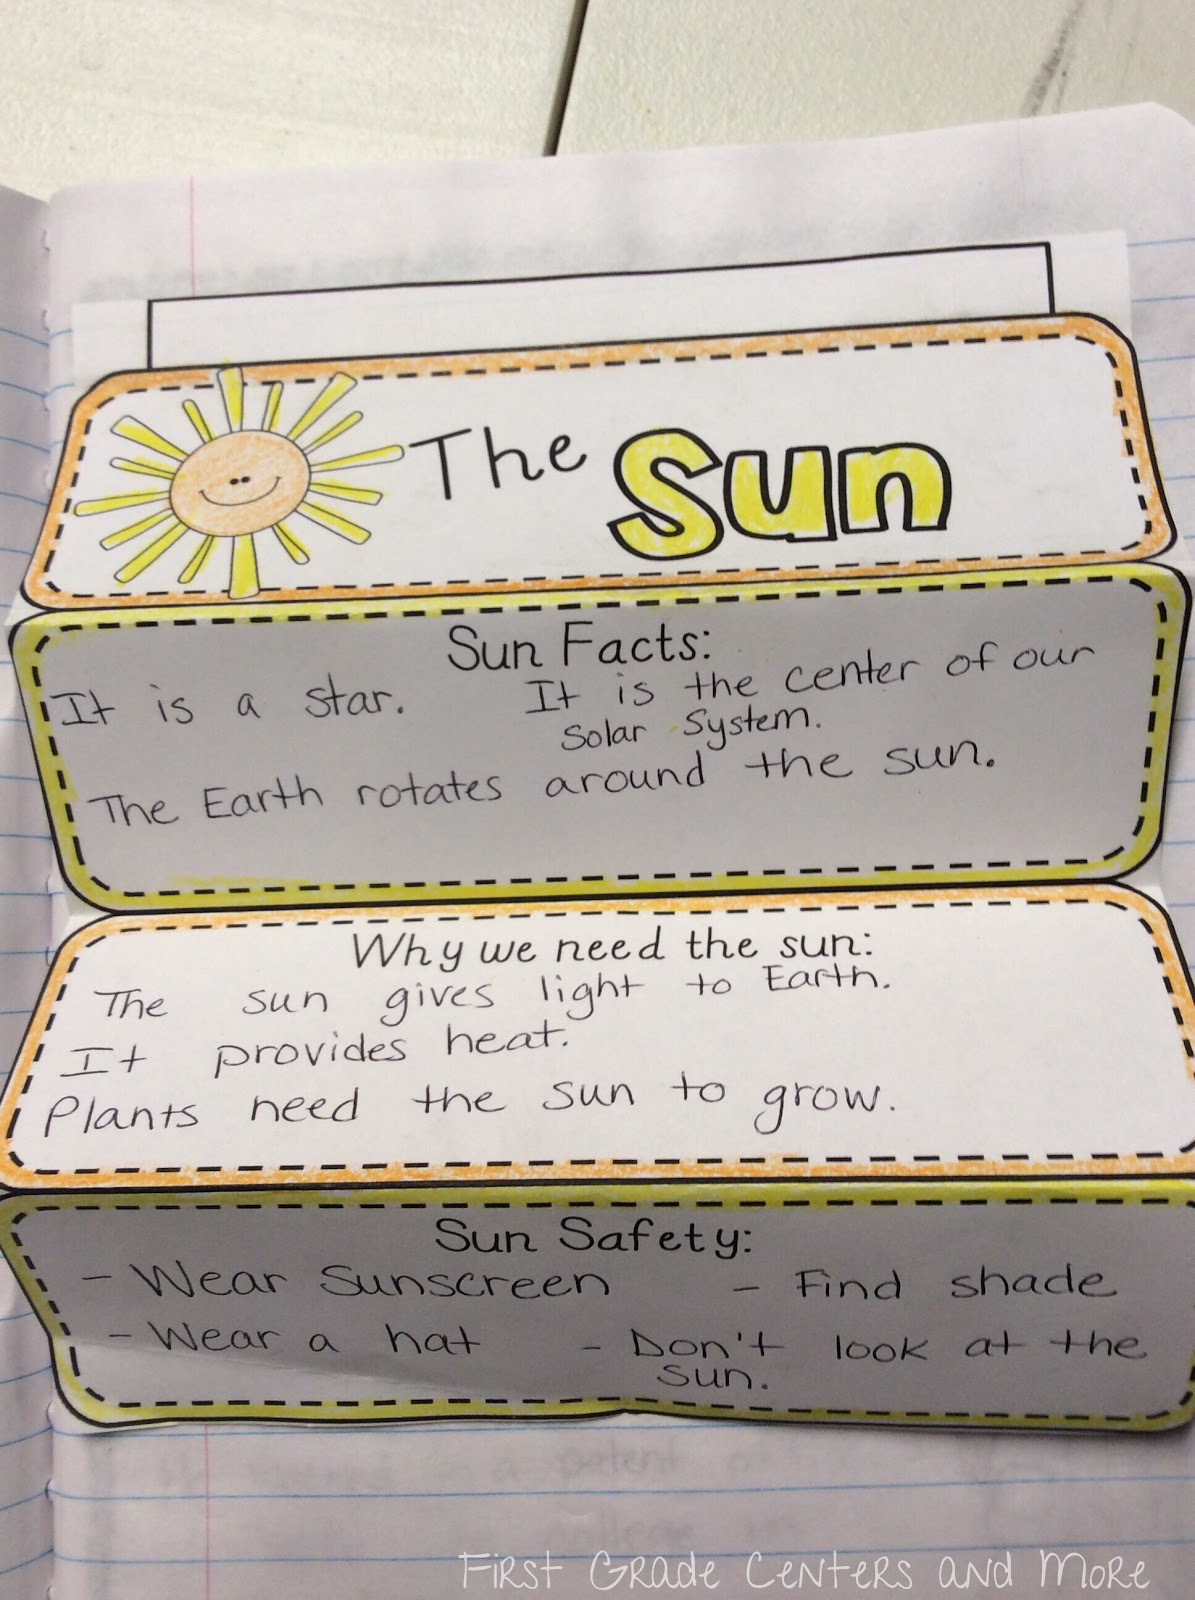 The Sun
Sun Facts:
It is a star. It is the center of our
Solar System.
The Earth rotates around the sun.
Why we need the sun:
The sun gives light to Earth.
It provides heat.
Plants need the sun to grow.
Sun Safety:
- Wear Sunscreen - Find shade
- Wear a hat - Don't look at the
sun.
First Grade Centers and More